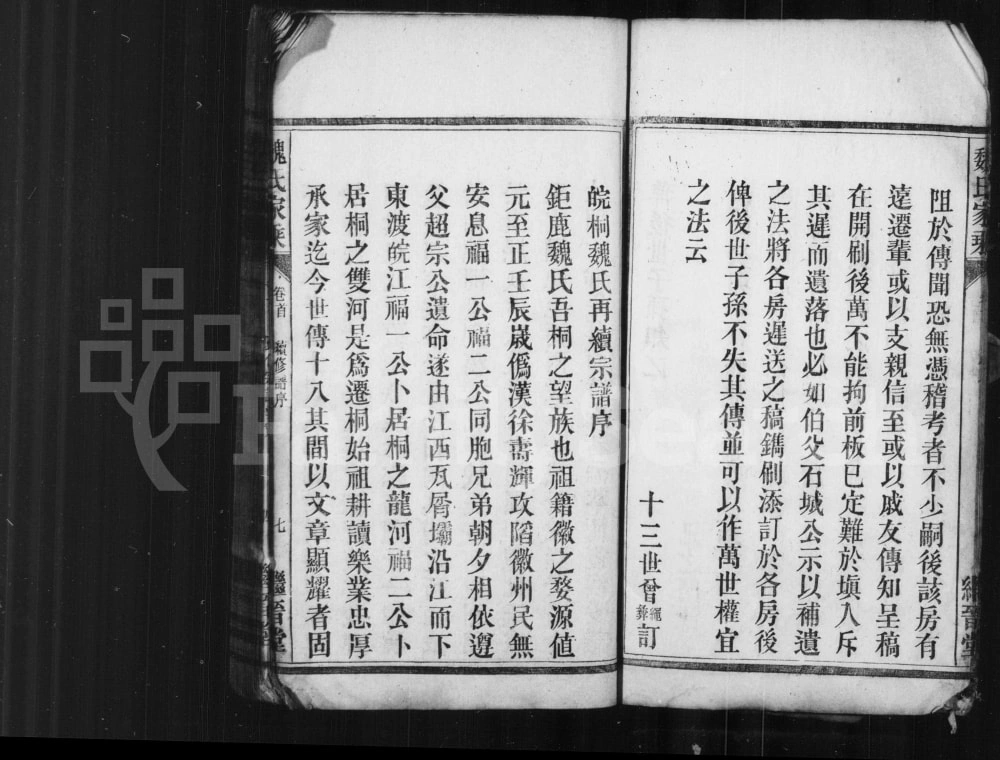 魏氏家乘
阻於傳聞恐無憑稽考者不少嗣後該房有
遠遷輩或以支親信至或以戚友傳知呈稿
在開刷後萬不能拘前板已定難於塡入斥
其遲而遺落也必如伯父石城公示以補遺
之法將各房遲送之稿鐫刷添訂於各房後
俾後世子孫不失其傳並可以作萬世權宜
之法云
十三世曾繩彝訂
皖桐魏氏再續宗譜序
鉅鹿魏氏吾桐之望族也祖籍徽之婺源值
元至正壬辰嵗僞漢徐壽輝攻䧟徽州民無
安息福一公福二公同胞兄弟朝夕相依遵
父超宗公遺命遂由江西瓦屑壩沿江而下
東渡皖江福一公卜居桐之龍河福二公卜
居桐之雙河是爲遷桐始祖耕讀樂業忠厚
承家迄今世傳十八其間以文章顯耀者固
魏氏家乘
卷首
續修譜序
七
繼晉堂